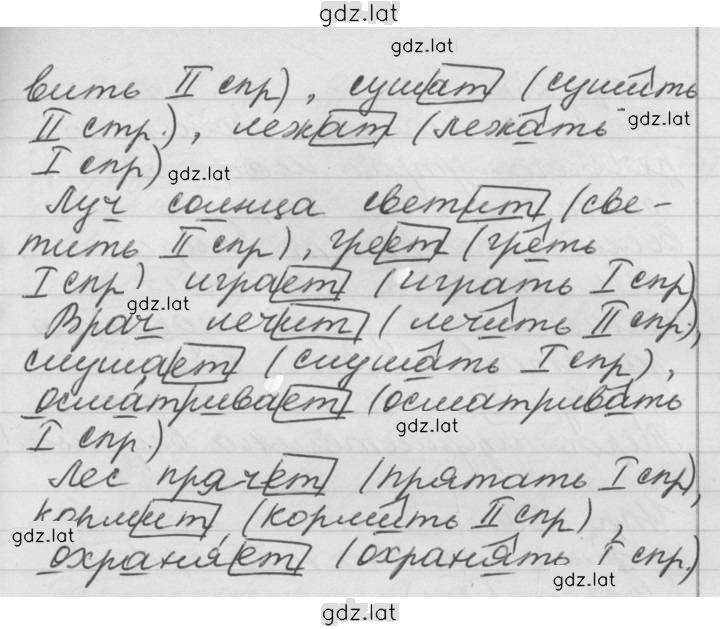 gdz.lat
gdz.lat
вить II спр), сушат (сушить
II стр.), лежат (лежать gdz.lat
I спр) gdz.lat
Луч солнца светит (све-
тить II спр), греет (греть
I спр) играет (играть I спр)
gdz.lat
Врач лечит (лечить II спр),
слушает (слушать I спр),
осматривает (осматривать
gdz.lat
I спр)
Лес прячет (прятать I спр),
кормит (кормить II спр),
gdz.lat
охраняет (охранять I спр.)
gdz.lat
gdz.lat